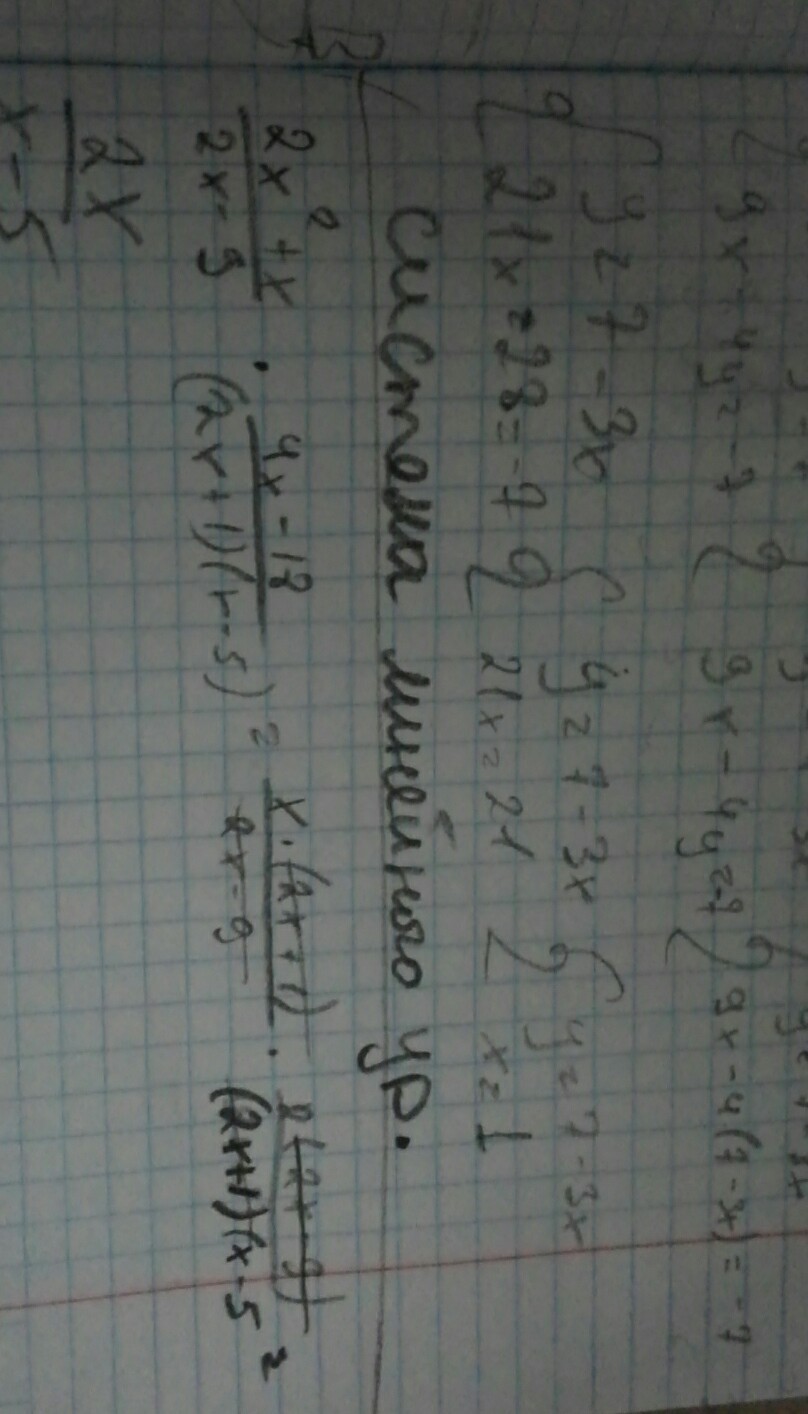 { 9x - 4y = -7 { 9x - 4y = -7 { 9x - 4(7 - 3x) = -7
{ y = 7 - 3x { y = 7 - 3x { y = 7 - 3x
{ 21x = 28 = -7 { 21x = 21 { x = 1
система линейного ур.
(2x² + x)/(2x - 9) · (4x - 18)/((2x + 1)(x - 5)) = (x · (2x + 1))/(2x - 9) · (2(2x - 9))/((2x + 1)(x - 5) =
2x/(x - 5)